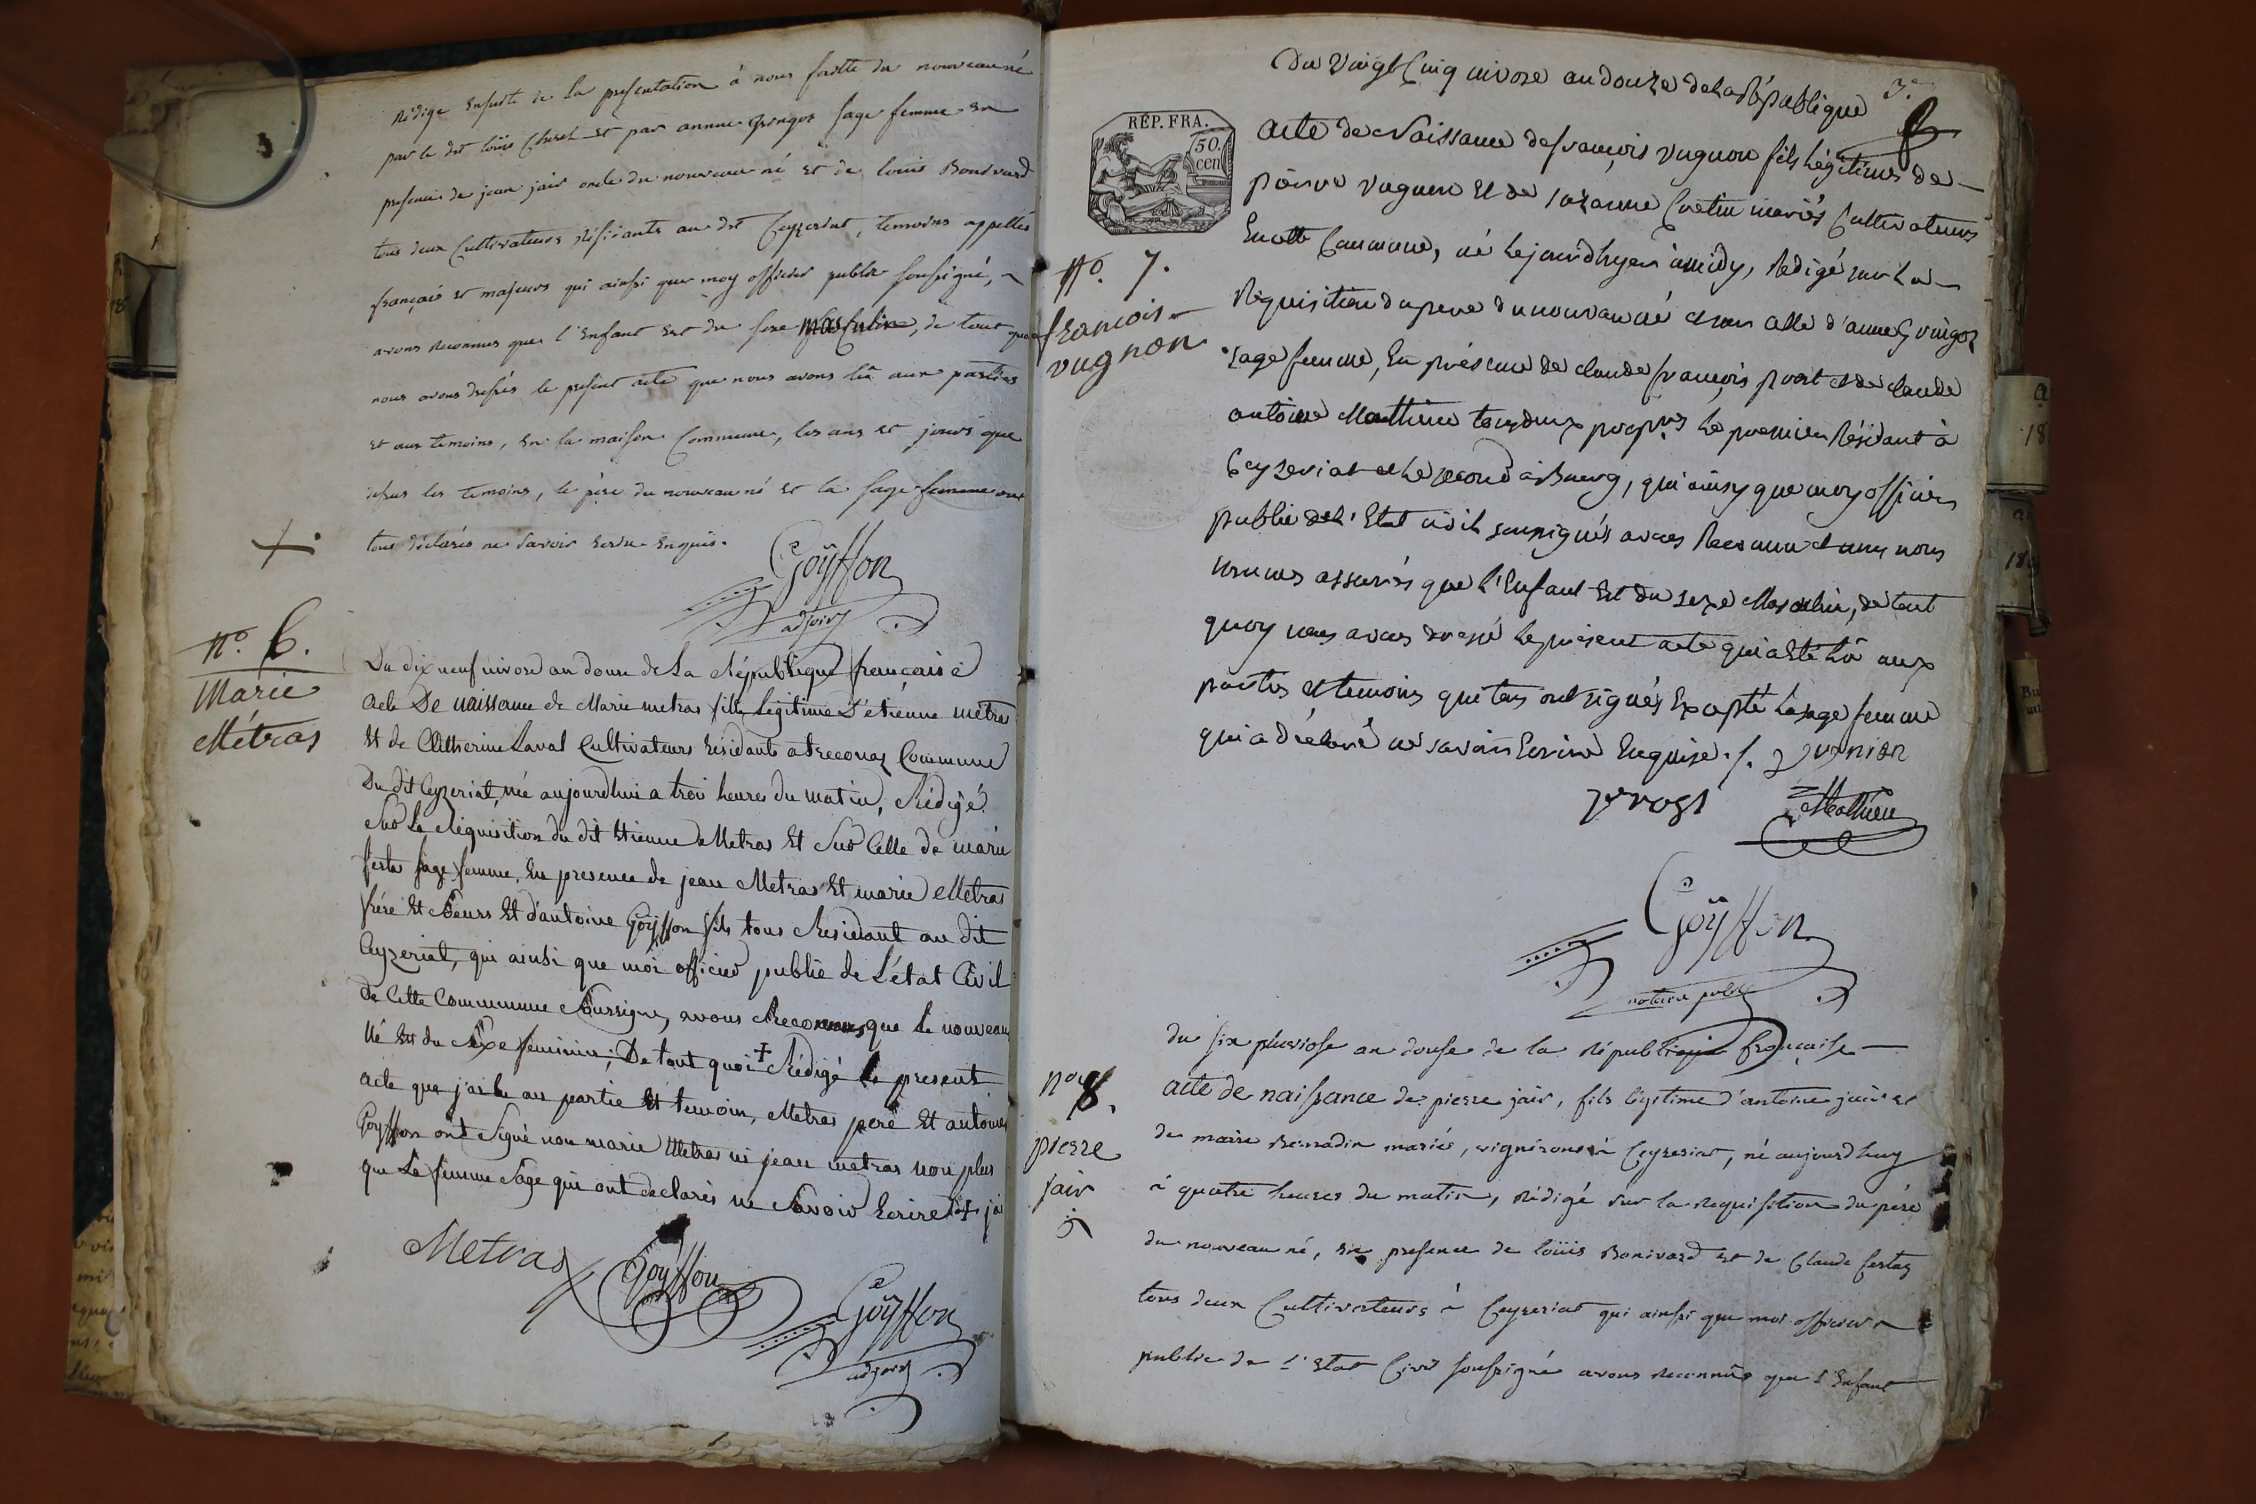 Rédigé Ensuite de la presentation à nous faitte du nouveau né
par le dit loüis Chevel et par anne gringoz sage femme en
presence de jean jair oncle du nouveau né et de louis Bonivard
tous deux Cultivateurs résidants au dit Ceyzeriat, temoins appellés
français et majeurs qui ainsi que moy officier public soussigné,
avons Reconnus que l'Enfant est du sexe masculin, de tout quoi
nous avons dressés le present acte que nous avons lû aux parties
et aux temoins, en la maison Commune, les ans et jours que
dessus les temoins, le père du nouveau né et la sage femme ont
tous déclarés ne savoir Ecrire Enquis.
Goÿffon
adjoint
No. 6.
Marie
Métras
Du dix neuf nivose an douze de La République française
Acte De naissance de Marie metras fille Legitime D'etienne metras
Et de Catherine Laval Cultivateurs Résidants a treconnaz Commune
Du dit Ceyzeriat, née aujourdhui a trois heures du matin, Rédigé
Sur Le Réquisition du dit Etienne Metras Et Sur Celle de marie
sage femme, En presence de jean Metras Et marie Metras
frére Et Sœurs Et d'antoine Goÿffon fils tous Residant au dit
Ceyzeriat, qui ainsi que moi officier public de L'état Civil
De Cette Commune Soussigné, avons Reconnus que le nouveau
Né Est du Sexe feminin; De tout quoi + Rédigé le present
acte que j'ai lu au partie Et temoin, Metras pere Et antoine
Goyffon ont Signé non marie Metras ni jean metras non plus
que La femme Sage qui ont declarés ne Savoir Ecrire + j'ai
Metras Goÿffon
Goÿffon
adjoint
3e
Du Vingt Cinq nivose an douze de la République
RÉP. FRA.
50.
cen
No. 7.
francois
vugnon
Acte de Naissance de françois vugnon fils Légitime de
pierre vugnon Et de suzanne Cretin mariés Cultivateurs
En cette Commune, né Le jour d'hyer à midy, Redigé sur La
Réquisition du pere du nouveau né et sur celle d'anne Gringoz
sage femme, En présence de claude françois prost et de claude
antoine Matthieu tous deux propres Le premier Résidant à
Ceyzeriat et Le second à Bourg, qui ainsy que moy officier
public de l'Etat civil soussignés avons Reconnu et nous
sommes assurés que L'Enfant Est du sexe Masculin, de tout
quoy nous avons dressé Le présent acte qui a Eté Lû aux
parties et temoins qui tous ont signés Excepté La sage femme
qui a déclaré ne savoir Ecrire Enquise. /. vugnion
prost Mathieu
Goÿffon
notaire public
No. 8.
pierre
jair
du six pluviose an douse de la République française
acte de naissance de pierre jair, fils légitime d'antoine jair et
de marie Bernadin mariés, vignerons à Ceyzeriat, né aujourdhuy
à quatre heures du matin, Rédigé sur la Requisition du père
du nouveau né, en presence de loüis Bonivard et de Claude Certaz
tous deux Cultivateurs à Ceyzeriat qui ainsi que moi officier
public de l'Etat Civil soussigné avons Reconnûs que l'Enfant